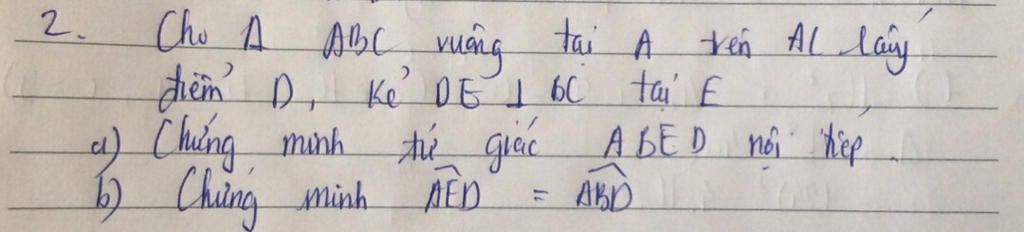 2. Cho Δ ABC vuông tại A trên AC lấy
điểm D, kẻ DE ⊥ BC tại E
a) Chứng minh tứ giác ABED nội tiếp.
b) Chứng minh \widehat{AED} = \widehat{ABD}